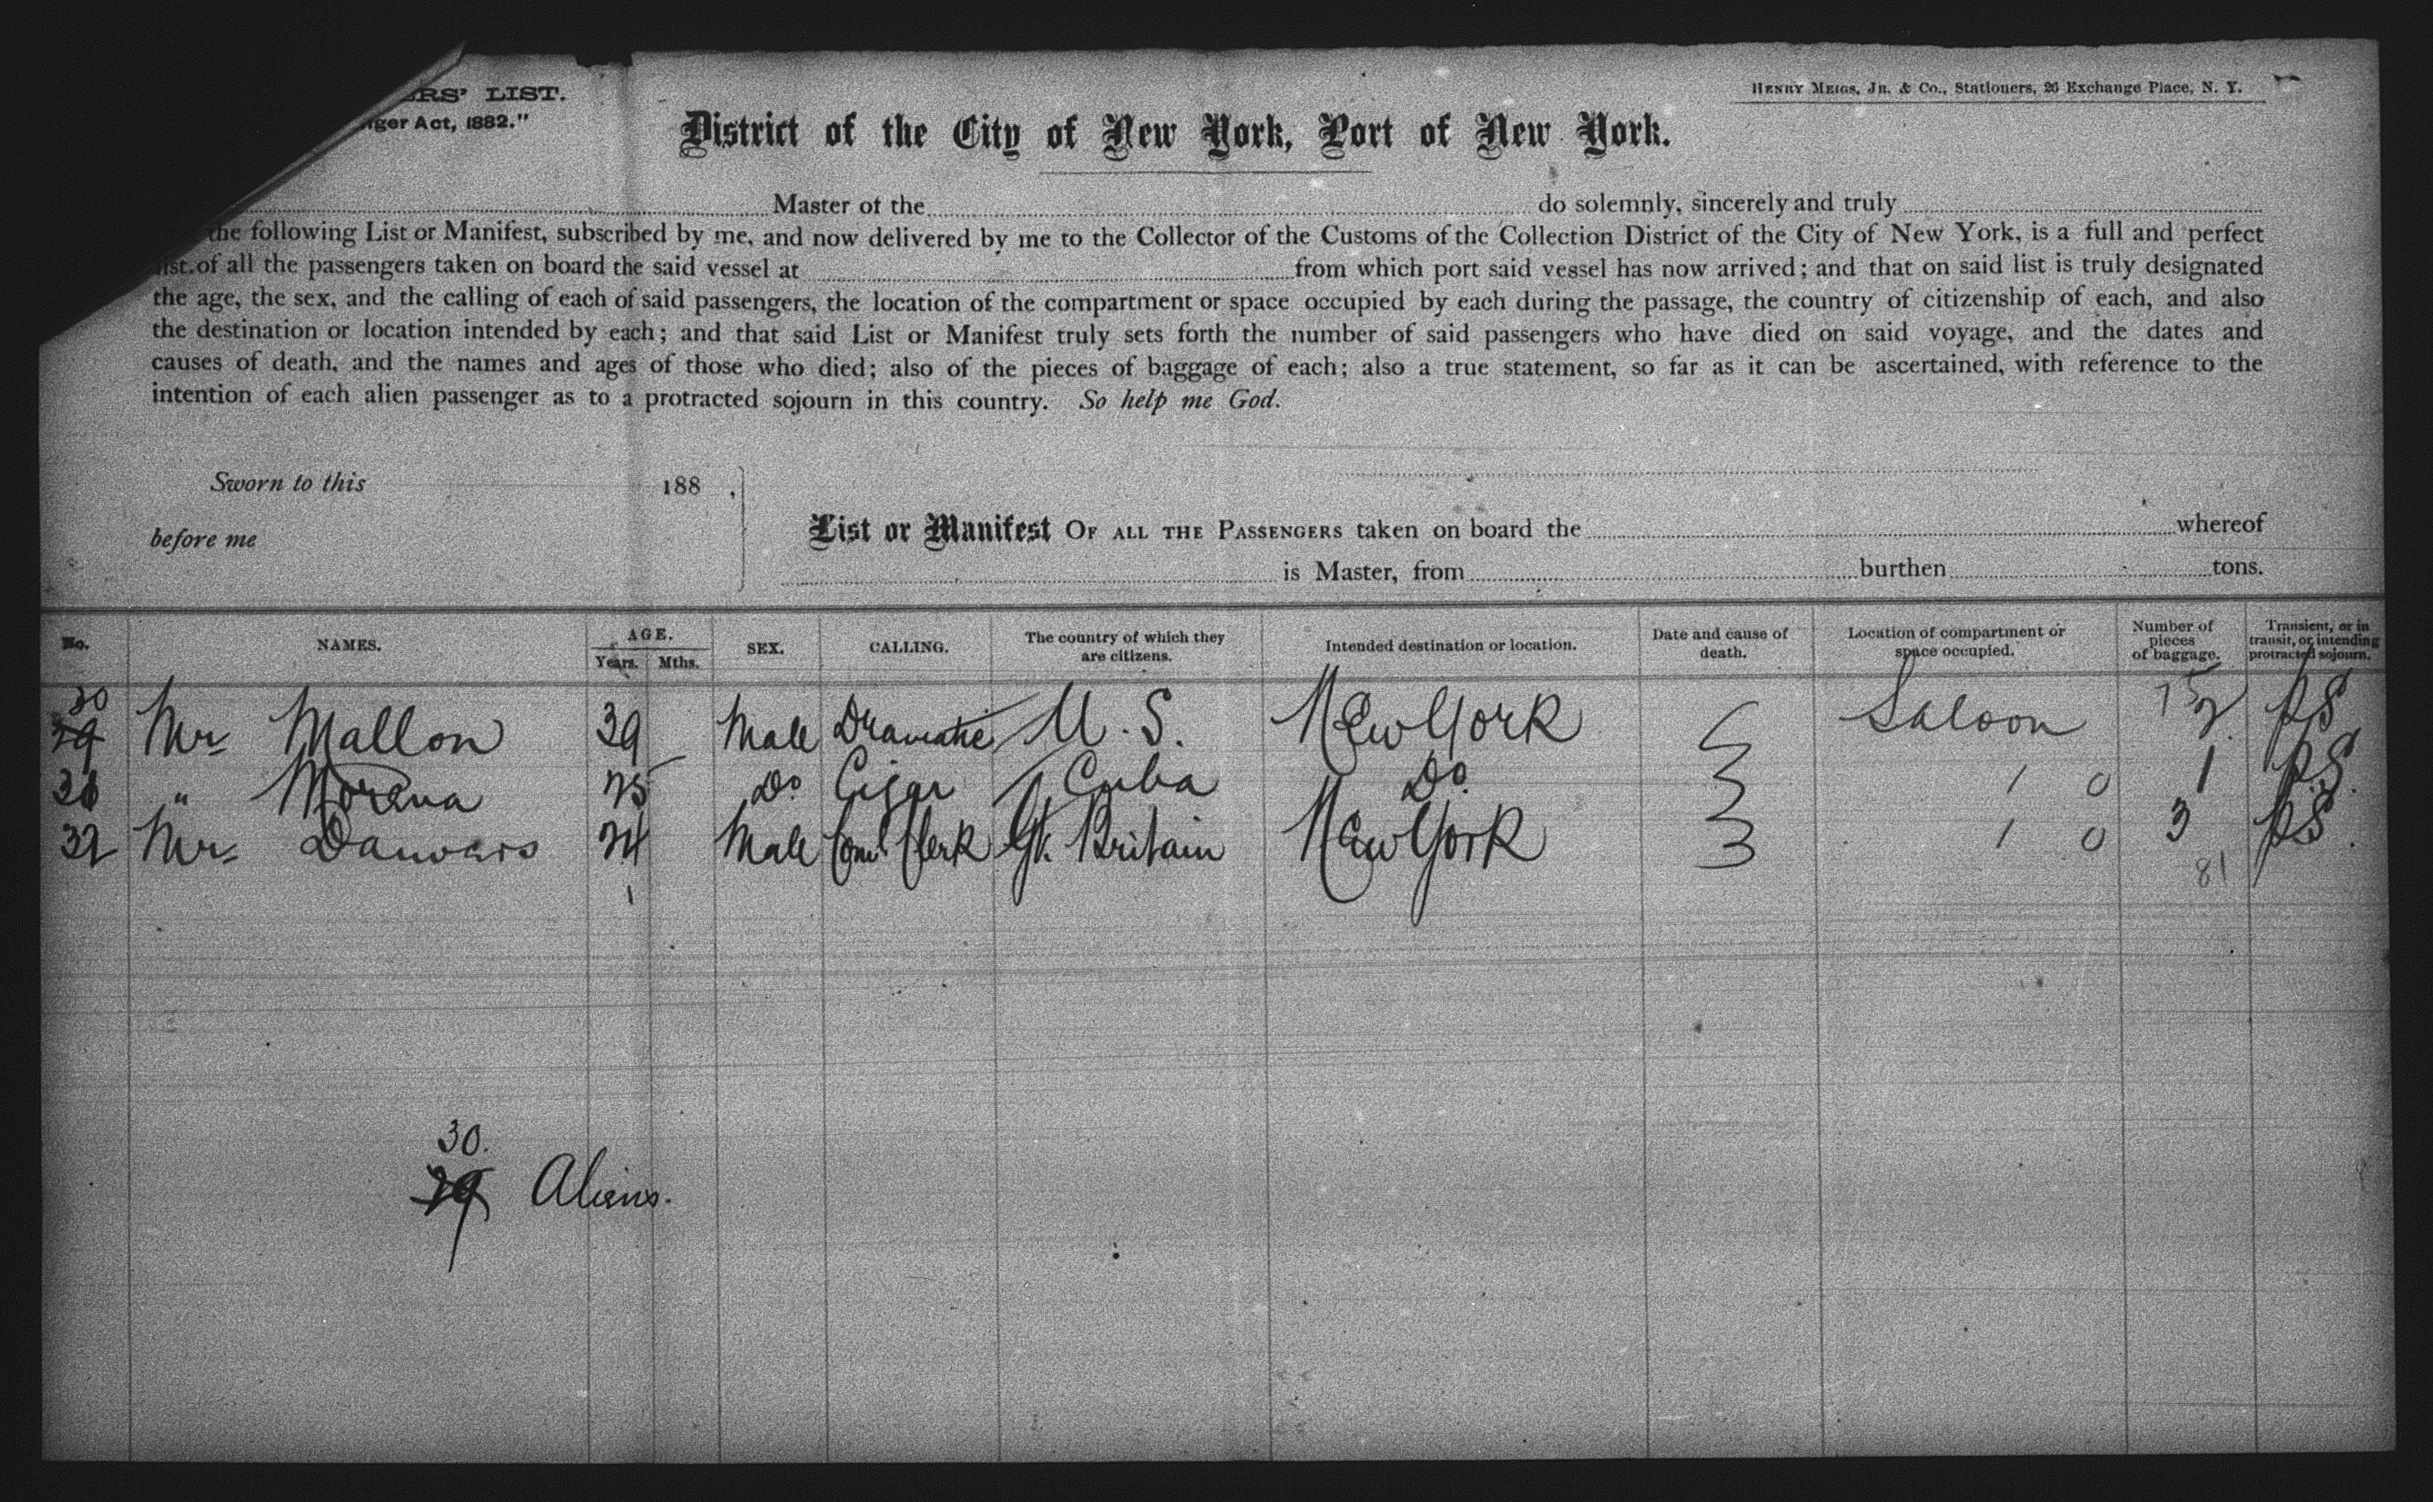 ERS' LIST.
nger Act, 1882."
HENRY MEIGS, JR. & CO., Stationers, 26 Exchange Place, N. Y.
District of the City of New York, Port of New York.
Master of the do solemnly, sincerely and truly
the following List or Manifest, subscribed by me, and now delivered by me to the Collector of the Customs of the Collection District of the City of New York, is a full and perfect
list of all the passengers taken on board the said vessel at from which port said vessel has now arrived; and that on said list is truly designated
the age, the sex, and the calling of each of said passengers, the location of the compartment or space occupied by each during the passage, the country of citizenship of each, and also
the destination or location intended by each; and that said List or Manifest truly sets forth the number of said passengers who have died on said voyage, and the dates and
causes of death, and the names and ages of those who died; also of the pieces of baggage of each; also a true statement, so far as it can be ascertained, with reference to the
intention of each alien passenger as to a protracted sojourn in this country. So help me God.
Sworn to this 188 ,
before me
List or Manifest OF ALL THE PASSENGERS taken on board the whereof
is Master, from burthen tons.
No. NAMES. AGE. Years. Mths. SEX. CALLING. The country of which they are citizens. Intended destination or location. Date and cause of death. Location of compartment or space occupied. Number of pieces of baggage. Transient, or in transit, or intending protracted sojourn.
30
29 Mr Mallon 39 Male Dramatic U.S. New York Saloon 2 PS
31 " Morena 25 Do Cigar Cuba Do. 1 0 1 P.S.
32 Mr Danvers 24 Male Coml. Clerk Gt. Britain New York 1 0 3 PS.
1 81
30.
29 Aliens.